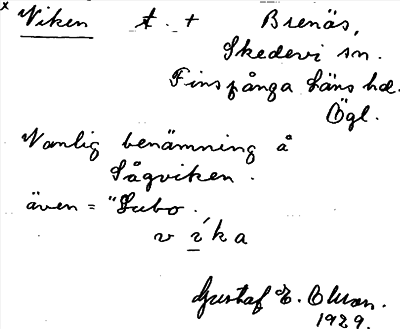 x Viken t. + Brenäs,
Skedevi sn.
Finspånga läns hd.
Ögl.
Vanlig benämning å
Sågviken.
även = "Lubo.
v i ́ k a
Gustaf E. Olsson.
1929.